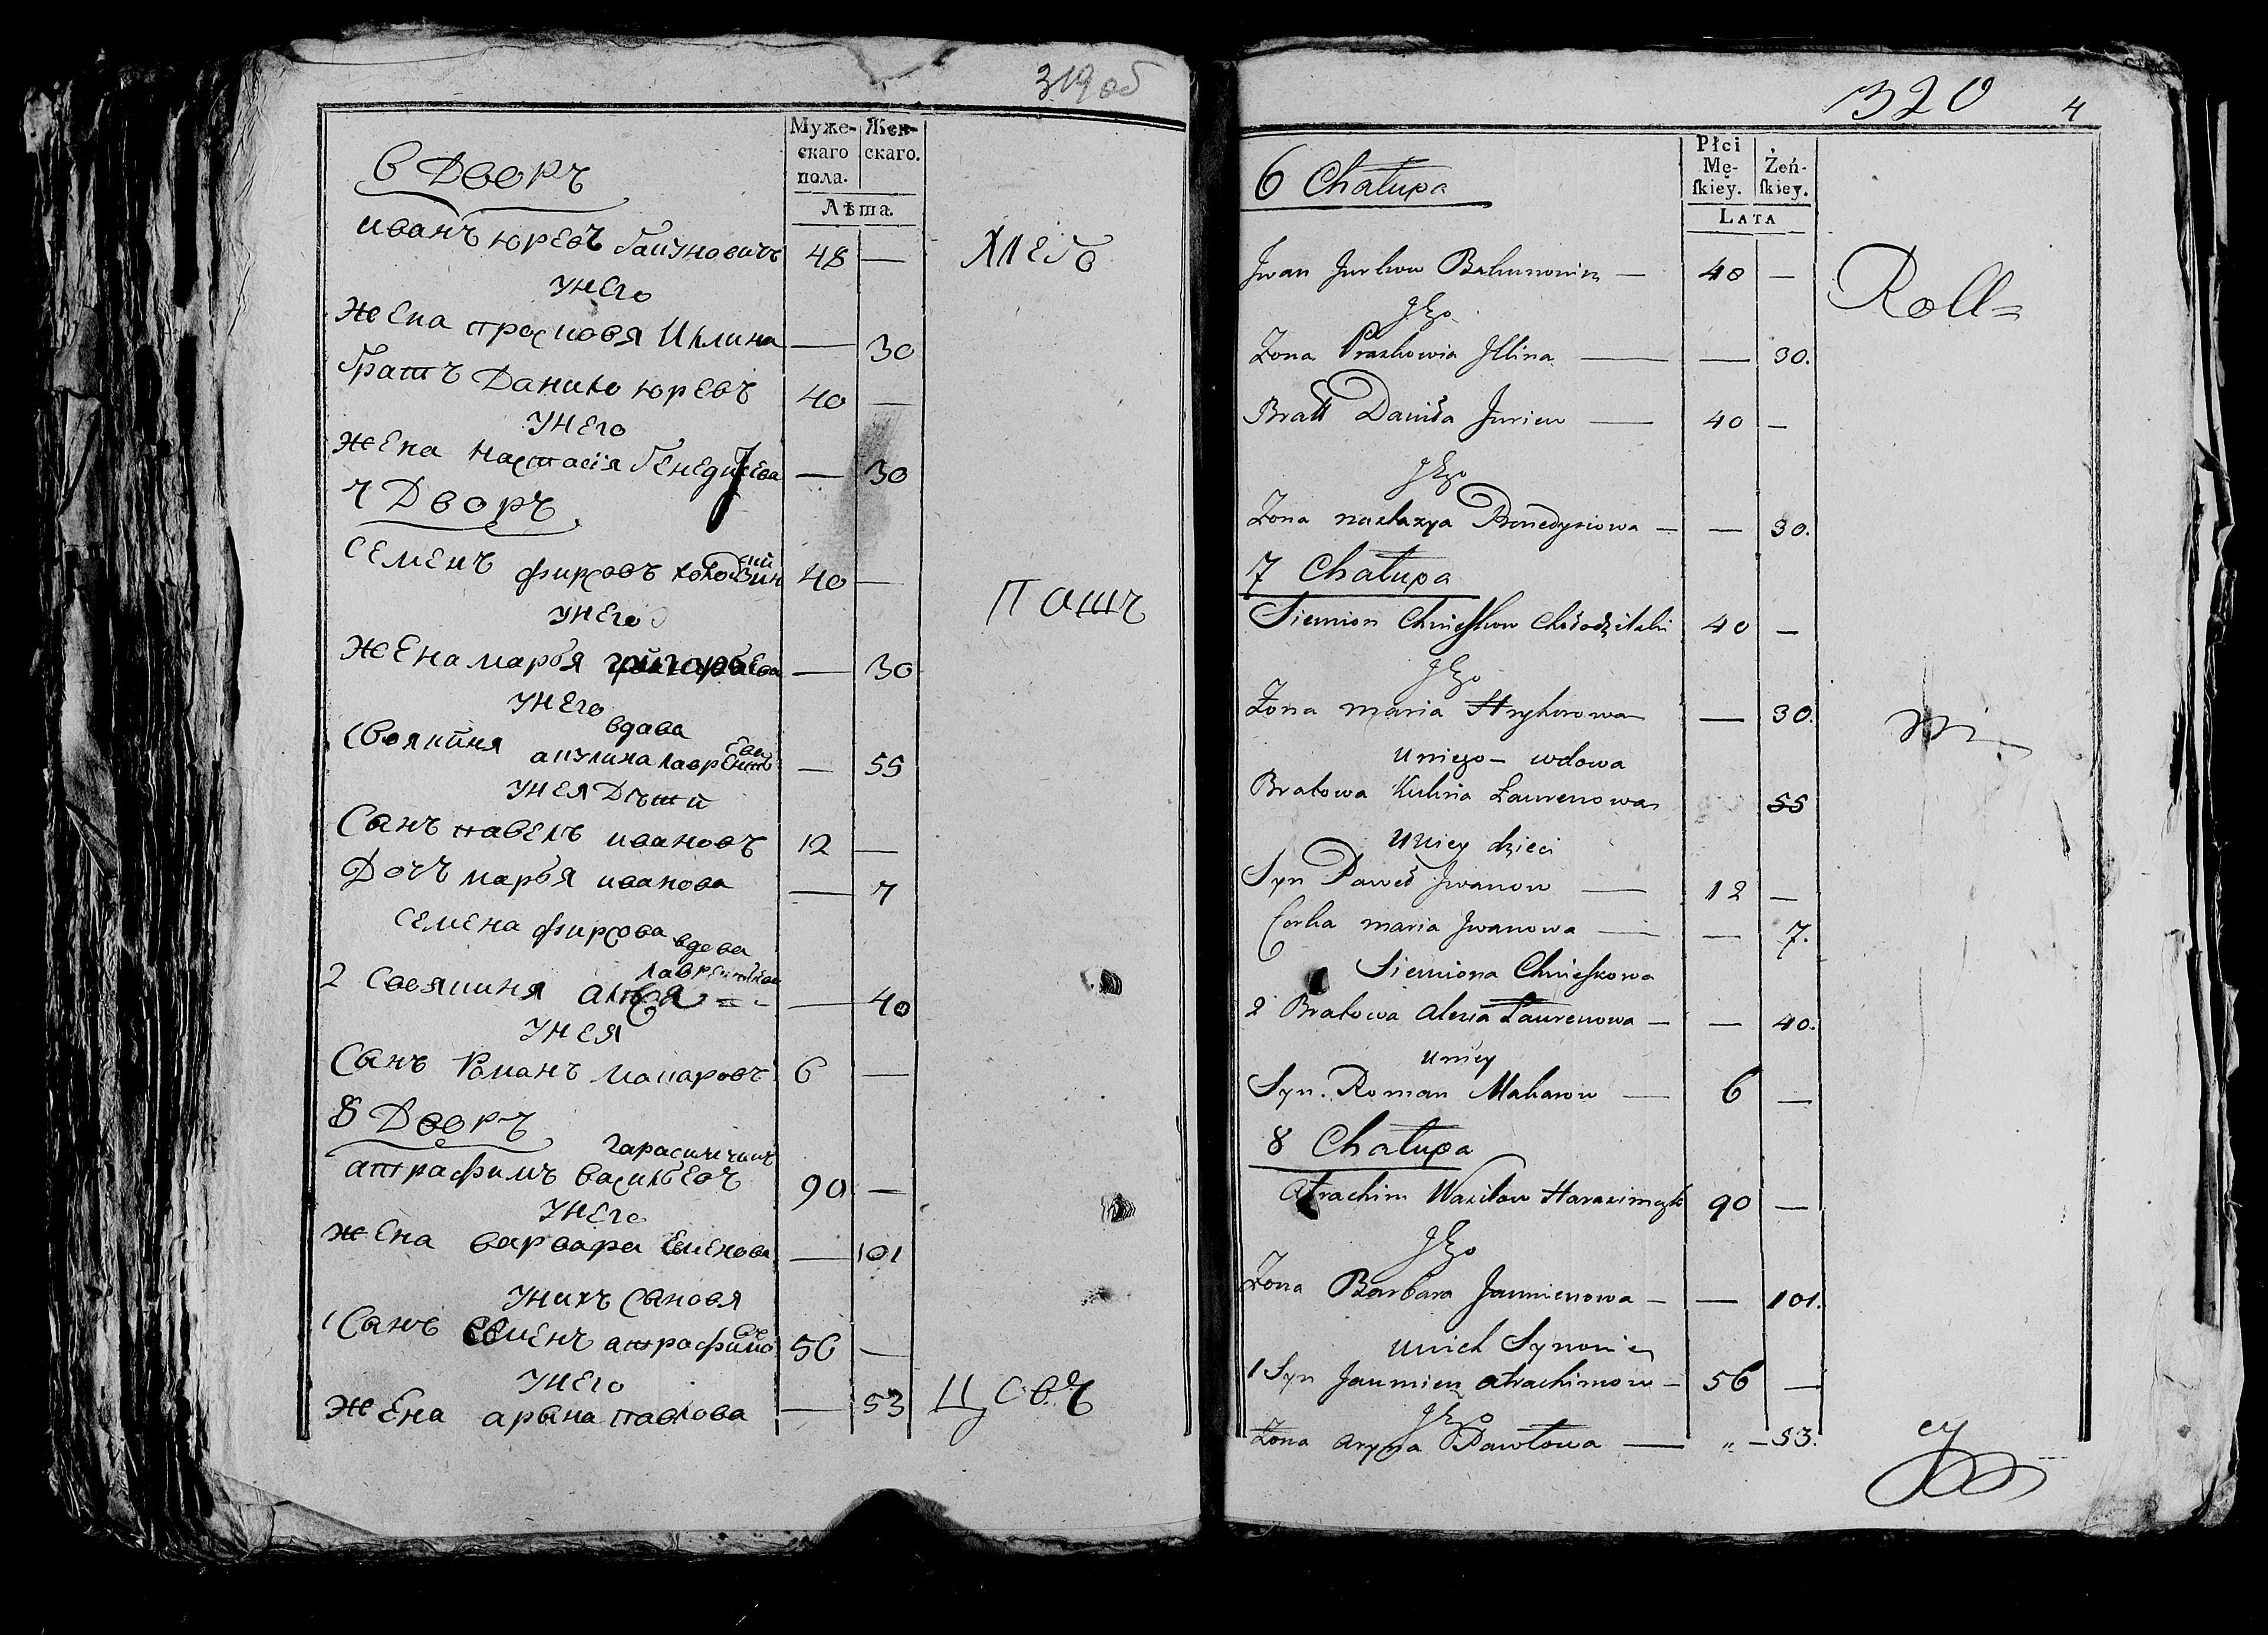 319 об
Муже-
скаго
пола.
Жен-
скаго.
Лѣта.
6 Дворъ
иванъ юревъ Бакуновичъ 48 — хлеб
унего
жена просковя Илина — 30
братъ Данило юревъ 40 —
унего
жена настасія бенедисева — 30
7 Дворъ
семенъ фирсовъ 40 —
пашъ
унего
жена марья григорьева — 30
унего
вдава
1 своякиня акулина лаврентьева — 55
унея дѣти
Сынъ павелъ ивановъ 12 —
Дочъ марья иванова — 7
семена фирсова
вдова
2 своякиня лаврентьева — 40
унея
Сынъ Романъ макаровъ 6 —
8 Дворъ
гарасимчикъ
атрафимъ васильевъ 90 —
унего
жена варвара Еменова — 101
унихъ сыновя
1 Сынъ Еменъ атрафимовъ 56 —
унего
жена арына павлова — 53 цовъ
320 4
Płci
Mę-
skiey.
Żeń-
skiey.
LATA
6 Chałupa
Jwan Jurkow Bakunowicz — 48 —
Roll=
Jego
Zona Praskowia Jllina — — 30.
Bratt Daniła Juriew — 40 —
Jego
Zona nastazya Benedysiowa — — 30.
7 Chałupa
Siemion Chwieskow Chołodzilski 40 —
Jego
Zona maria Hryhorowa — 30.
ni
uniego — wdowa
Bratowa Kulina Laurenowa 55
uniey dzieci
Syn Paweł Jwanow — 12 —
Corka maria Jwanowa — — 7.
Siemiona Chwieskowa
2 Bratowa alexia Laurenowa — — 40.
uniey
Syn. Roman Makarow — 6 —
8 Chałupa
atrachim Wasilow Harasimczyk 90 —
Jego
Zona Barbara Jaumienowa — — 101.
unich Synowie
1 Syn Jaumien atrachimow — 56 —
Jego
Zona aryna Pawłowa — „ — 53.
cy